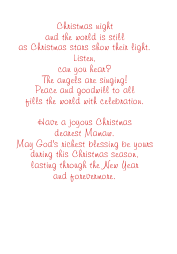 Christmas night
and the world is still
as Christmas stars show their light.
Listen,
can you hear?
The angels are singing!
Peace and goodwill to all
fills the world with celebration.
Have a joyous Christmas
dearest Mamaw.
May God's richest blessing be yours
during this Christmas season,
lasting through the New Year
and forevermore.